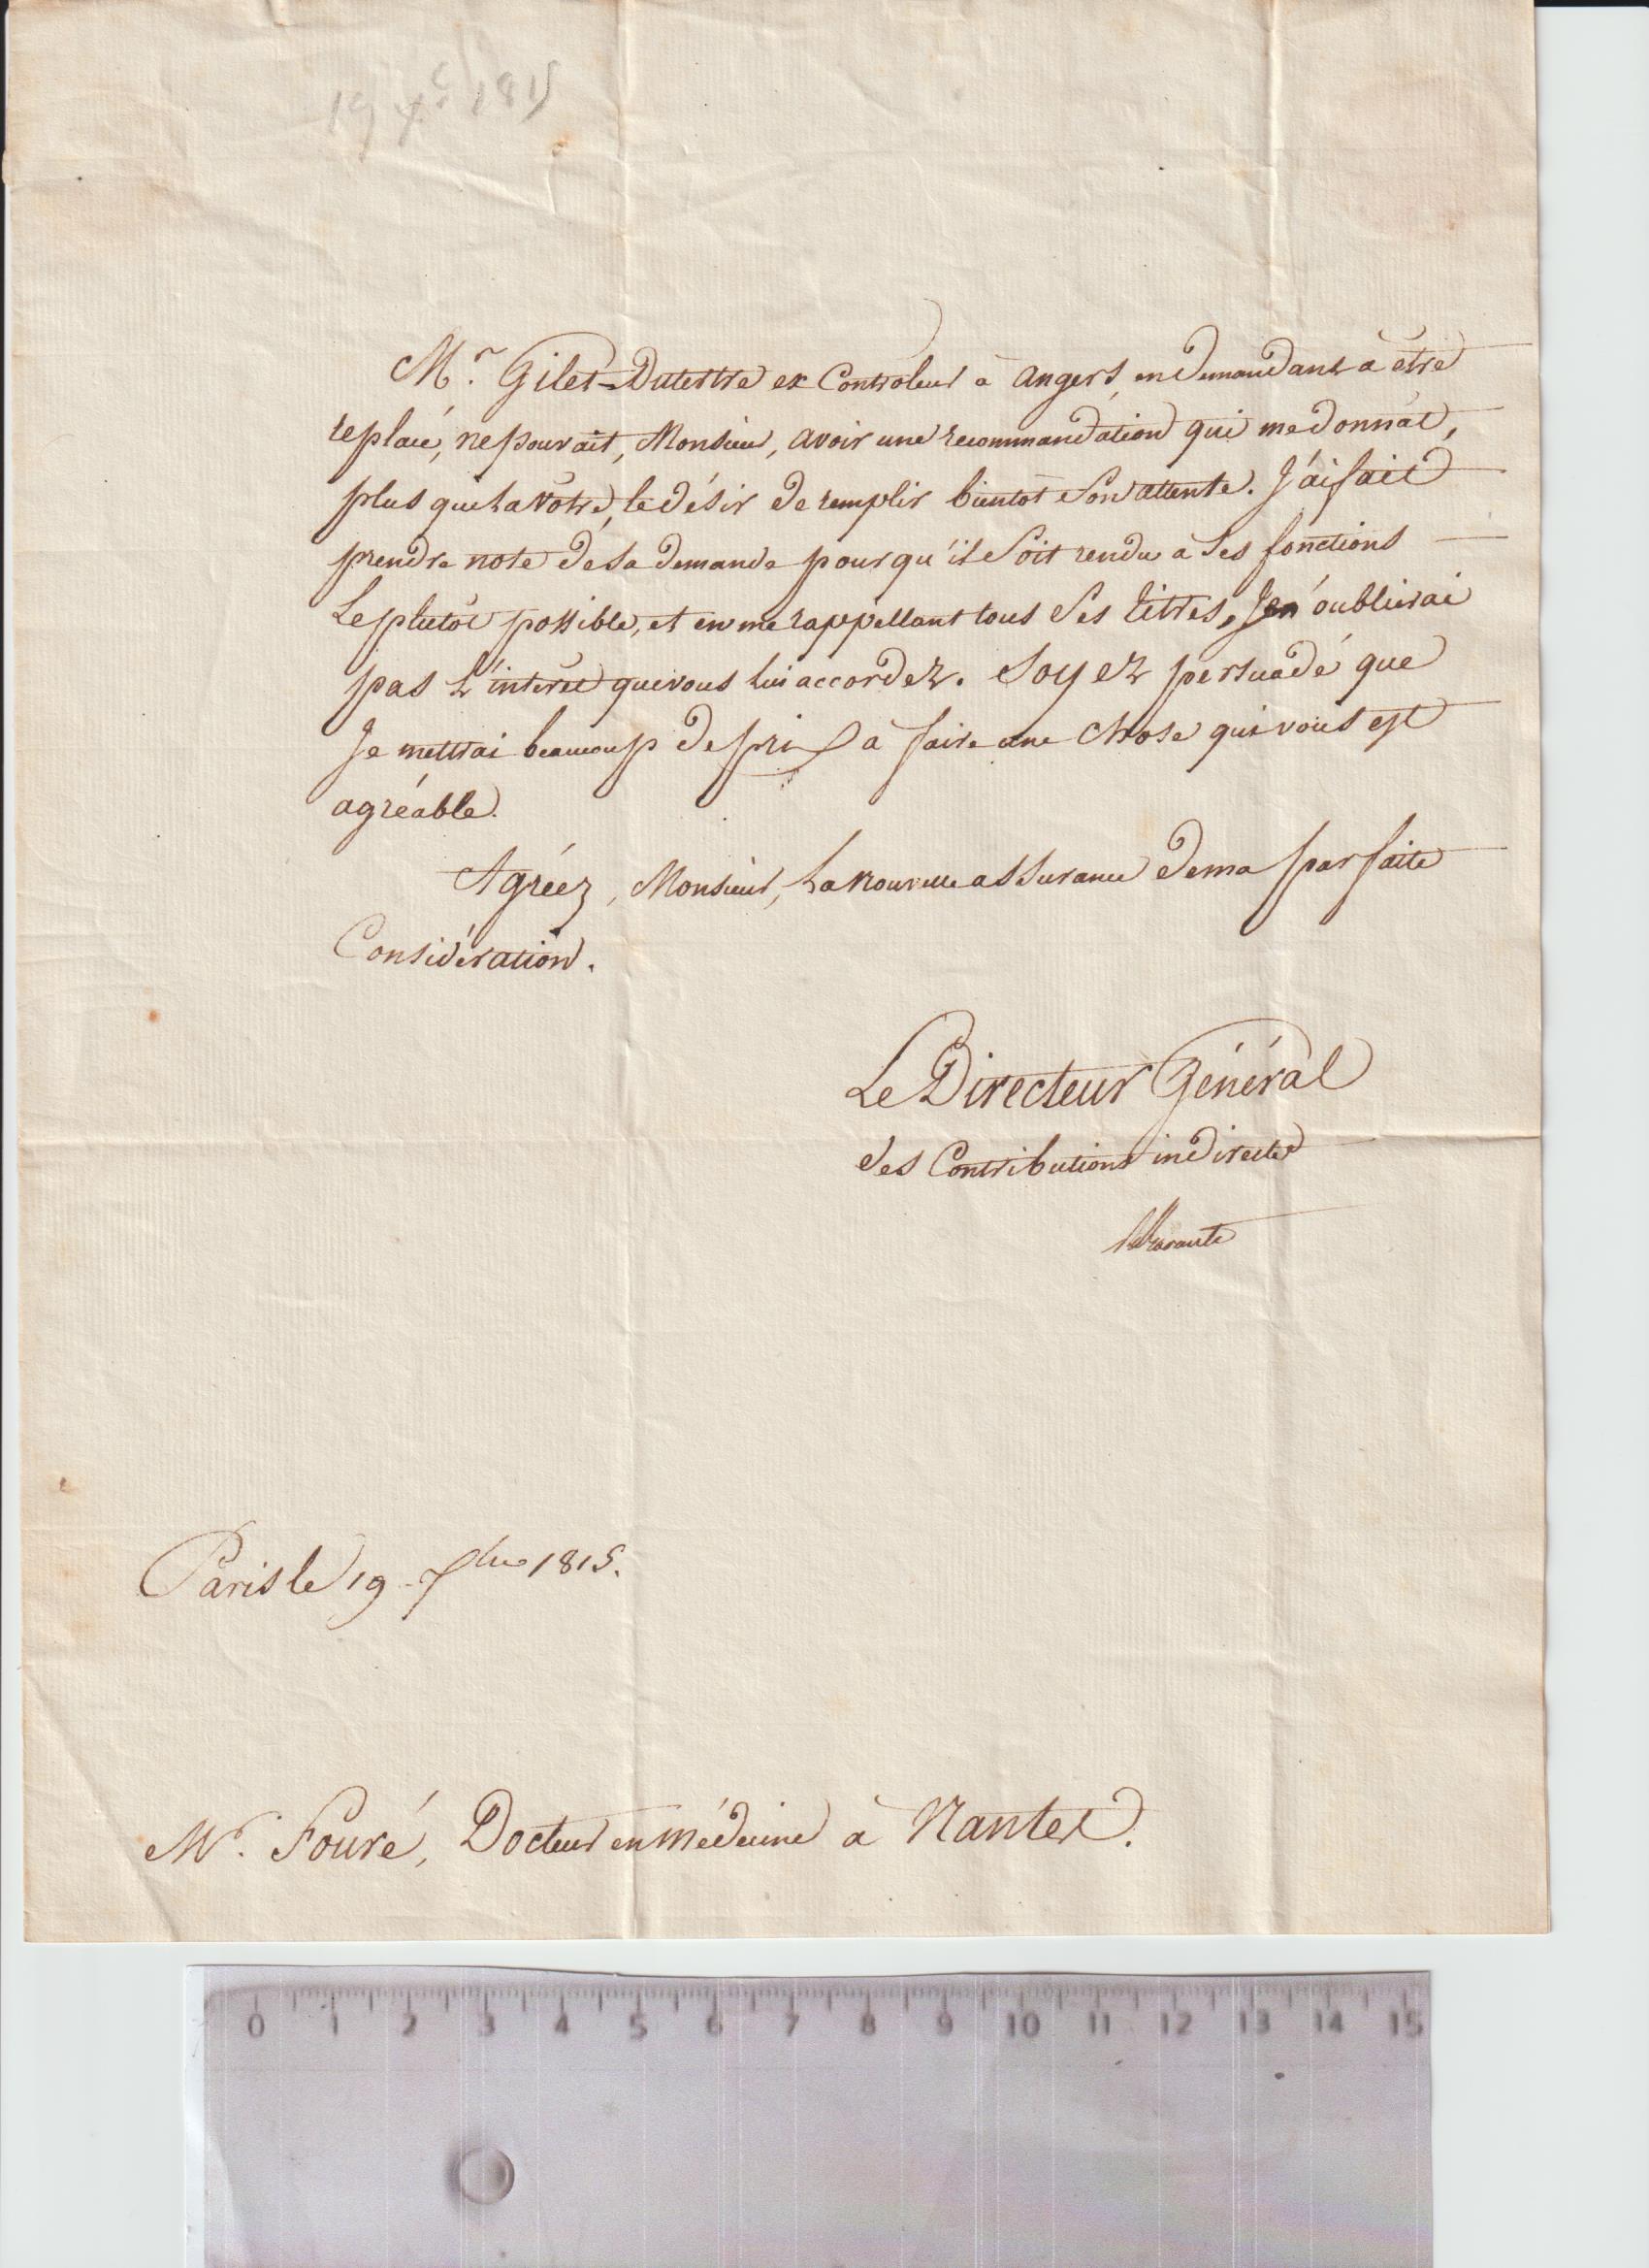 19 7bre 1815
Mr. Gilet-Dutertre ex Controleur à Angers, en demandant à être
replacé, ne pouvait, Monsieur, avoir une recommandation qui me donnât,
plus que la vôtre, le désir de remplir bientôt son attente. J'ai fait
prendre note de sa demande pour qu'il soit rendu à ses fonctions
le plutôt possible, et en me rappellant tous ses titres, Je n'oublierai
pas l'intérêt que vous lui accordez. Soyez persuadé que
Je mettrai beaucoup de prix à faire une chose qui vous est
agréable.
Agréez, Monsieur, la nouvelle assurance de ma parfaite
Considération.
Le Directeur Général
des Contributions indirectes
Barante
Paris le 19 7bre 1815.
Mr. Fouré, Docteur en Médecine à Nantes.
0 1 2 3 4 5 6 7 8 9 10 11 12 13 14 15